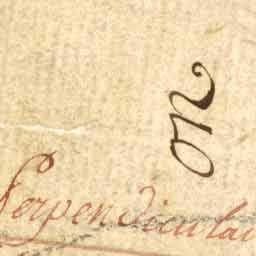 on
Perpendicular